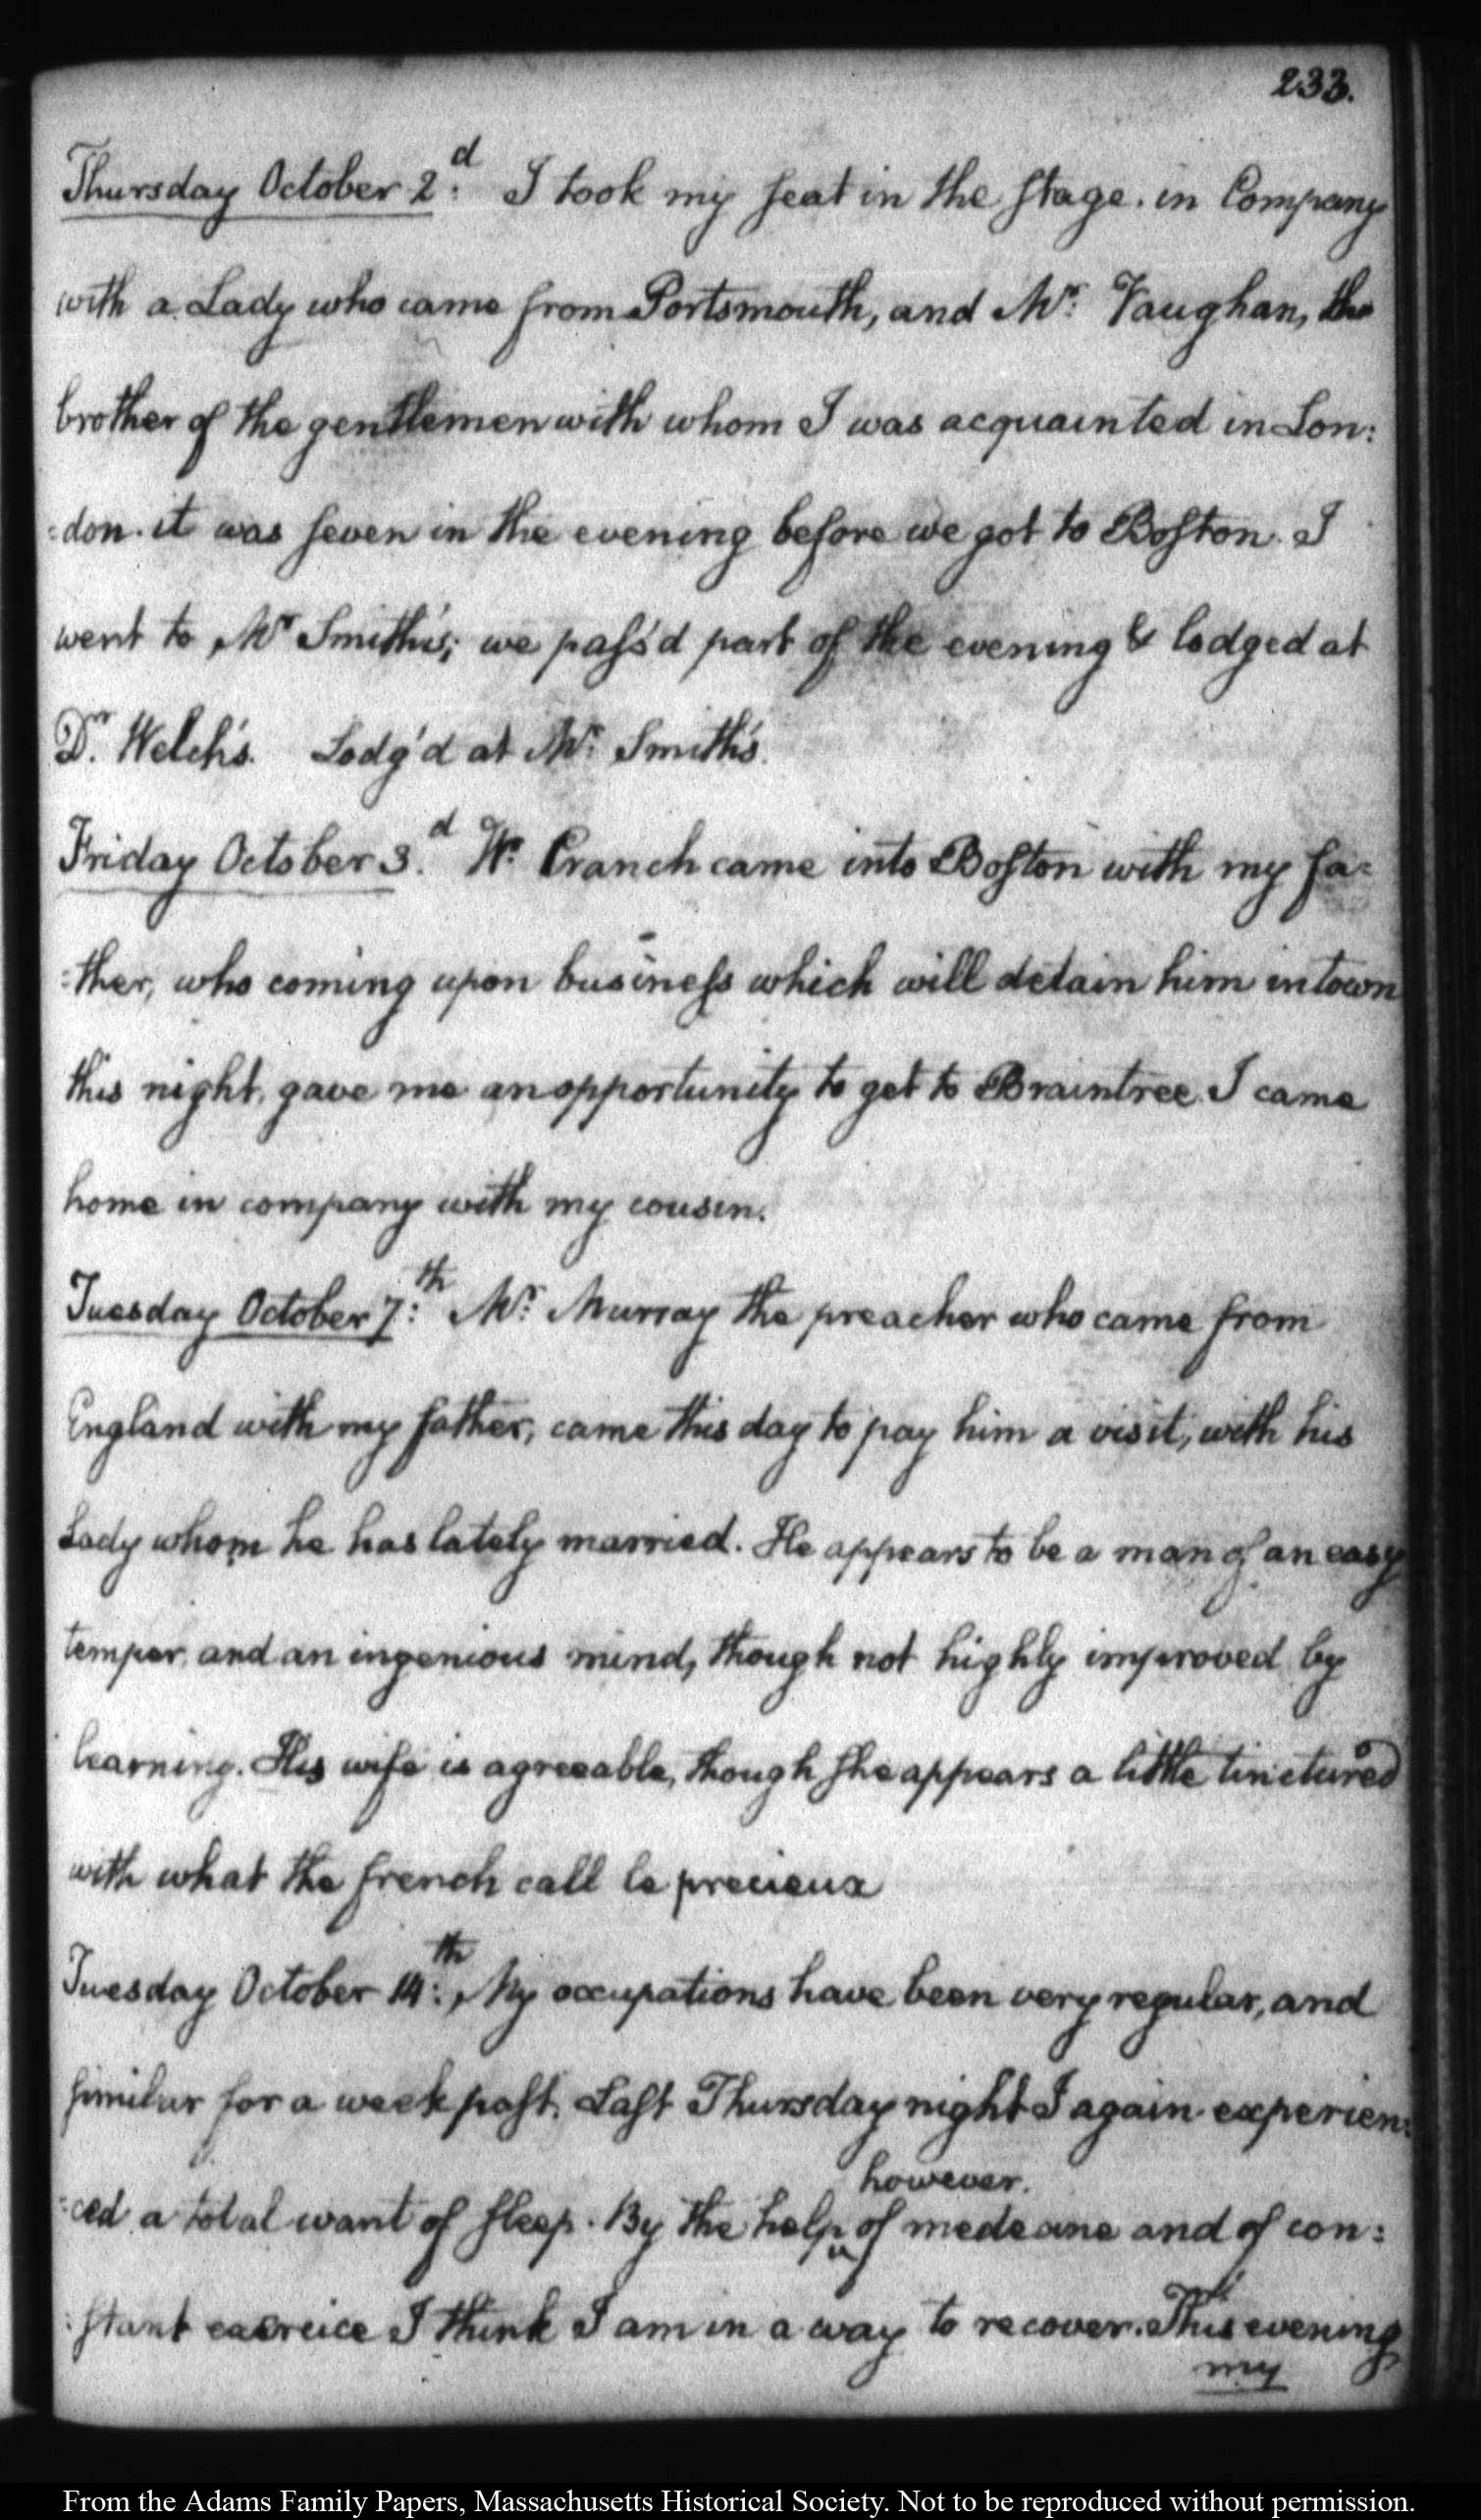 233.
Thursday October 2.d I took my seat in the stage. in Company
with a Lady who came from Portsmouth, and Mr. Vaughan, the
brother of the gentlemen with whom I was acquainted in Lon:
:don. it was seven in the evening before we got to Boston. I
went to Mr Smith's; we pass'd part of the evening & lodged at
Dr. Welch's. Lodg'd at Mr. Smith's.
Friday October 3.d Wm. Cranch came into Boston with my fa:
:ther, who coming upon business which will detain him in town
this night, gave me an opportunity to get to Braintree. I came
home in company with my cousin.
Tuesday October 7:th Mr. Murray the preacher who came from
England with my father, came this day to pay him a visit, with his
Lady whom he has lately married. He appears to be a man of an easy
temper, and an ingenious mind, though not highly improved by
learning. His wife is agreeable, though she appears a little tinctured
with what the french call le precieux
Tuesday October 14:th My occupations have been very regular, and
similar for a week past. Last Thursday night I again experien:
however.
:ced a total want of sleep. By the help of medecine and of con:
:stant exercice I think I am in a way to recover. This evening
my
From the Adams Family Papers, Massachusetts Historical Society. Not to be reproduced without permission.